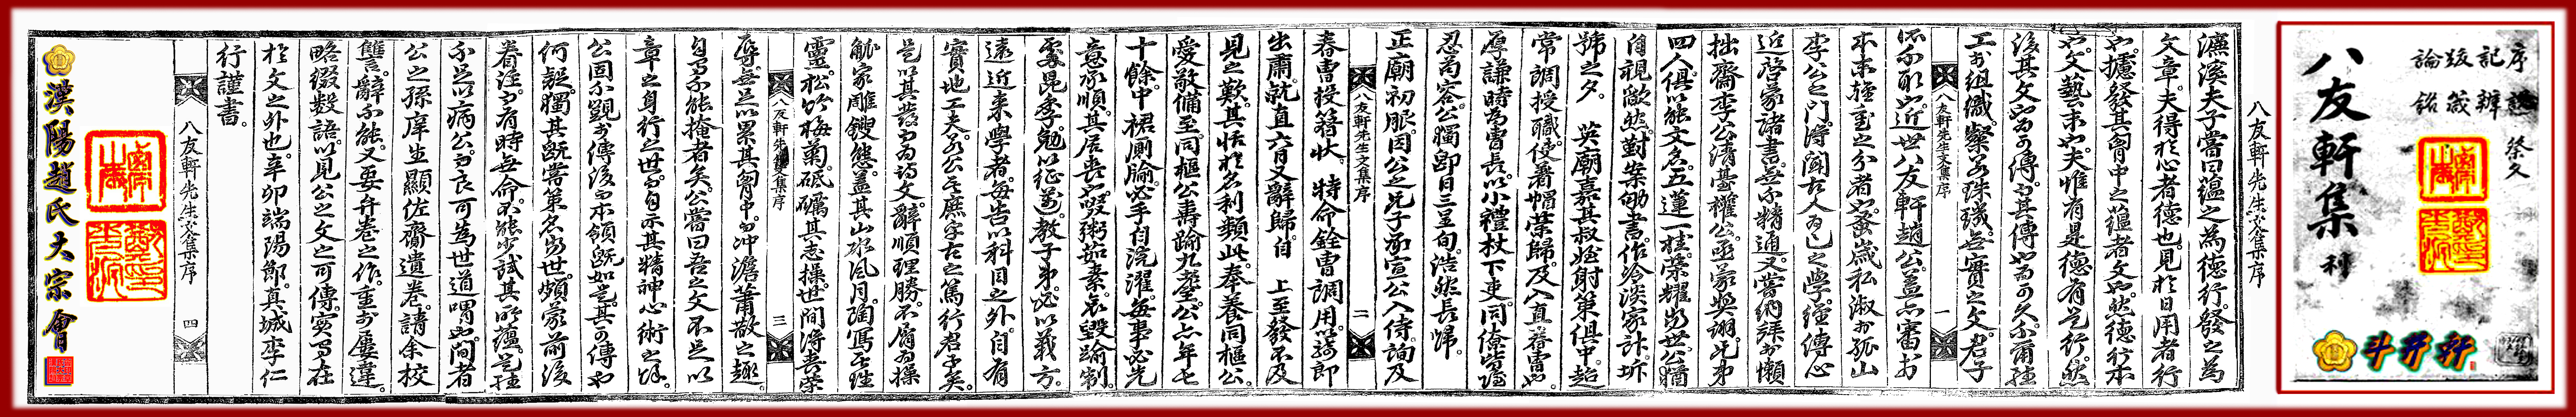 八友軒集 利
序 記 跋 論
祭文 辨 箴 銘
斗井軒
八友軒先生文集序
濂溪夫子嘗曰蘊之為德行發之為
文章夫得於心者德也見於日用者行
也攄發其胸中之蘊者文也然德行本
也文藝末也夫惟有是德有是行然
後其文也可傳其傳也可久不爾經
工於組織粲若珠璣無實之文君子
八友軒先生文集序 一
所不取近世八友軒趙公蓋亦審於
本末輕重之分者也蚤歲私淑於孤山
李公之門得聞古人為己之學經傳心
近啓蒙諸書無不精通又嘗納拜於懶
拙齋李公清臺權公亟蒙奬詡兄弟
四人俱以能文名五蓮一桂榮耀當世公猶
自視歉然對案劬書作冷淡家計圻
號之夕 英廟嘉其叔姪射策俱中超
常調授職使著帽榮歸及入直春曹
厚謙時為曹長以小禮杖下吏同僚皆
忍苟容公獨即日三呈旬浩然長歸
正廟初服因公之兄子承宣公入侍詢及
八友軒先生文集序 二
春曹投簪狀 特命銓曹調用以騎郎
出肅就直六月又辭歸自 上至發不及
見之歎其恬於名利類此奉養同樞公
愛敬備至同樞公壽踰九耋公亦年七
十餘中裙厠牏必手自浣濯每事必先
意承順其居喪也啜粥茹素哀毀踰制
處昆季勉以征邁教子弟必以義方
遠近來學者每告以科目之外自有
實地工夫若公者庶乎古之篤行君子矣
是以其發而為詩文辭順理勝不屑為操
觚家雕鎪態蓋其山水風月陶寫至性
靈松竹梅菊砥礪其志操世間得喪榮
八友軒先生文集序 三
辱無足以累其胸中而冲澹蕭散之趣
自有不能掩者矣公嘗曰吾之文不足以
章之身行之世而自示其精神心術之餘
公固不覬於傳後而本領旣如是其可傳也
何疑獨其旣嘗策名當世頗蒙前後
眷注而有時無命不能少試其所蘊是雖
不足以病公而良可為世道喟也間者
公之孫庠生顯佐齎遺巻請余校
讐辭不能又要弁卷之作重於屢違
略綴數語以見公之文之可傳實在
於文之外也辛卯端陽節真城李仁
行謹書
四
漢陽趙氏大宗會